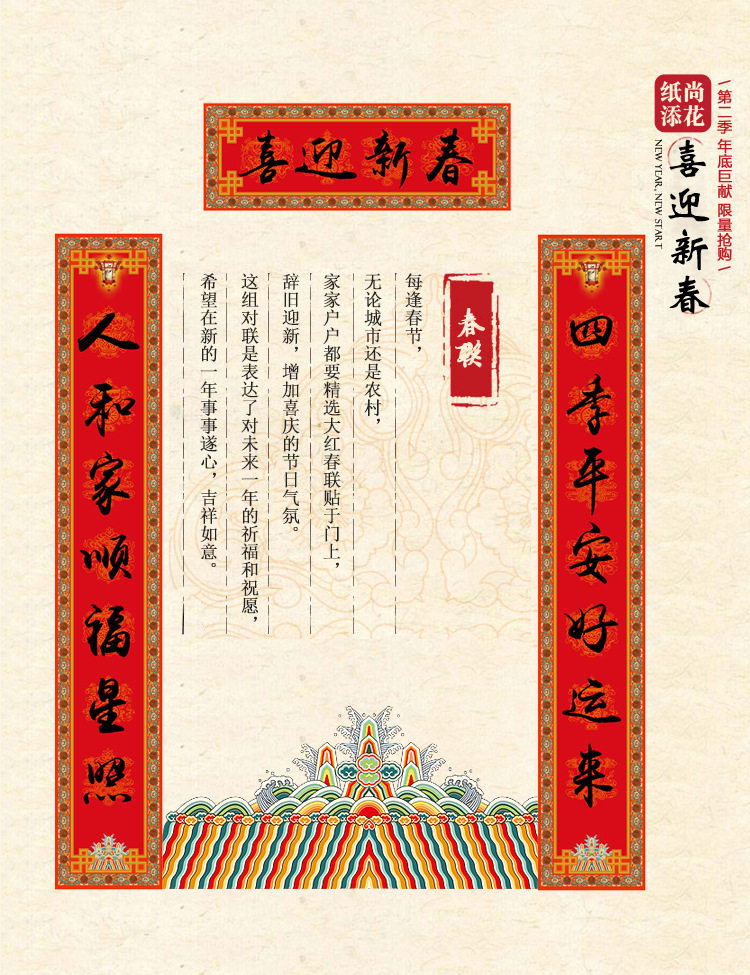 喜迎新春
第二季 年底巨献 限量抢购
尚花
纸添
喜迎新春
NEW YEAR, NEW START
四季平安好运来
春联
每逢春节，
无论城市还是农村，
家家户户都要精选大红春联贴于门上，
辞旧迎新，增加喜庆的节日气氛。
这组对联是表达了对未来一年的祈福和祝愿，
希望在新的一年事事遂心，吉祥如意。
人和家顺福星照